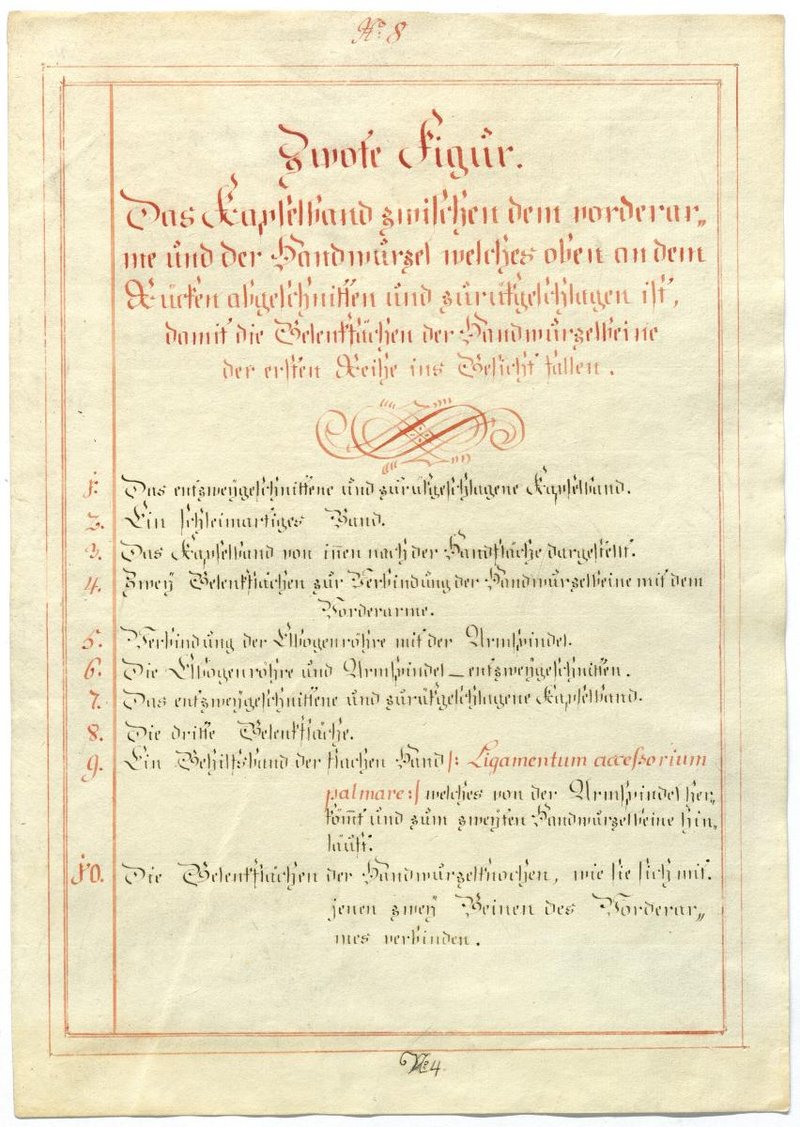 No 8
Zwote Figur.
Das Kapselband zwischen dem vorderar„
me und der Handwurzel welches oben an dem
Rücken abgeschnitten und zurükgeschlagen ist,
damit die Gelenkflächen der Handwurzelbeine
der ersten Reihe ins Gesicht fallen.
1. Das entzweygeschnittene und zurükgeschlagene Kapselband.
2. Ein schleimartiges Band.
3. Das Kapselband von in̅en nach der Handfläche dargestellt.
4. Zwey Gelenkflächen zur Verbindung der Handwurzelbeine mit dem
Vorderarme.
5. Verbindung der Elbogenröhre mit der Armspindel.
6. Die Elbogenröhre und Armspindel – entzweygeschnitten.
7. Das entzweygeschnittene und zurükgeschlagene Kapselband.
8. Die dritte Gelenkfläche.
9. Ein Behilfsband der flachen Hand /: Ligamentum accessorium
palmare :/ welches von der Armspindel her„
köm̅t und zum zweyten Handwurzelbeine hin„
läuft.
10. Die Gelenkflächen der Handwurzelknochen, wie sie sich mit
jenen zwey Beinen des Vorderar„
mes verbinden.
No 4